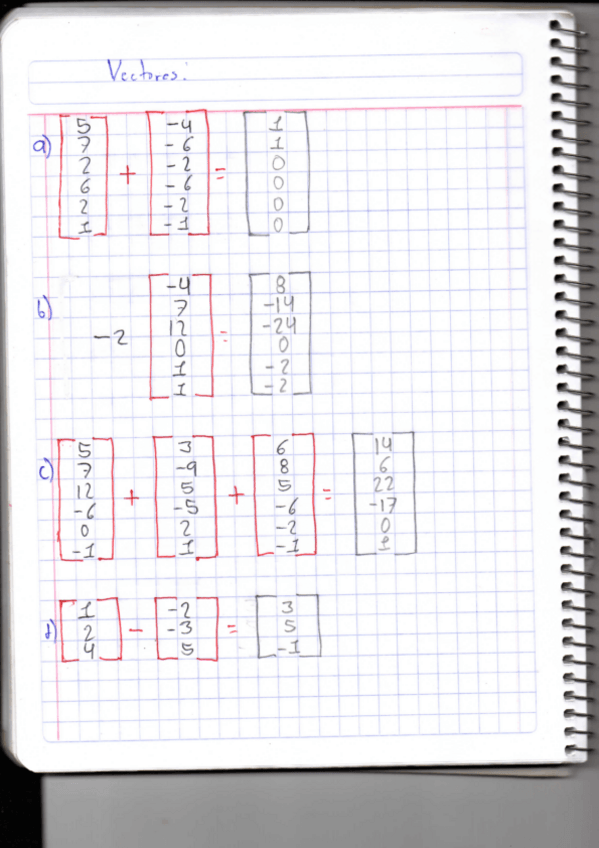 Vectores:
a) [5 7 2 6 2 1] + [-4 -6 -2 -6 -2 -1] = [1 1 0 0 0 0]
b) -2 [-4 7 12 0 1 1] = [8 -14 -24 0 -2 -2]
c) [5 7 12 -6 0 -1] + [3 -9 5 -5 2 1] + [6 8 5 -6 -2 -1] = [14 6 22 -17 0 1]
d) [1 2 4] - [-2 -3 5] = [3 5 -1]